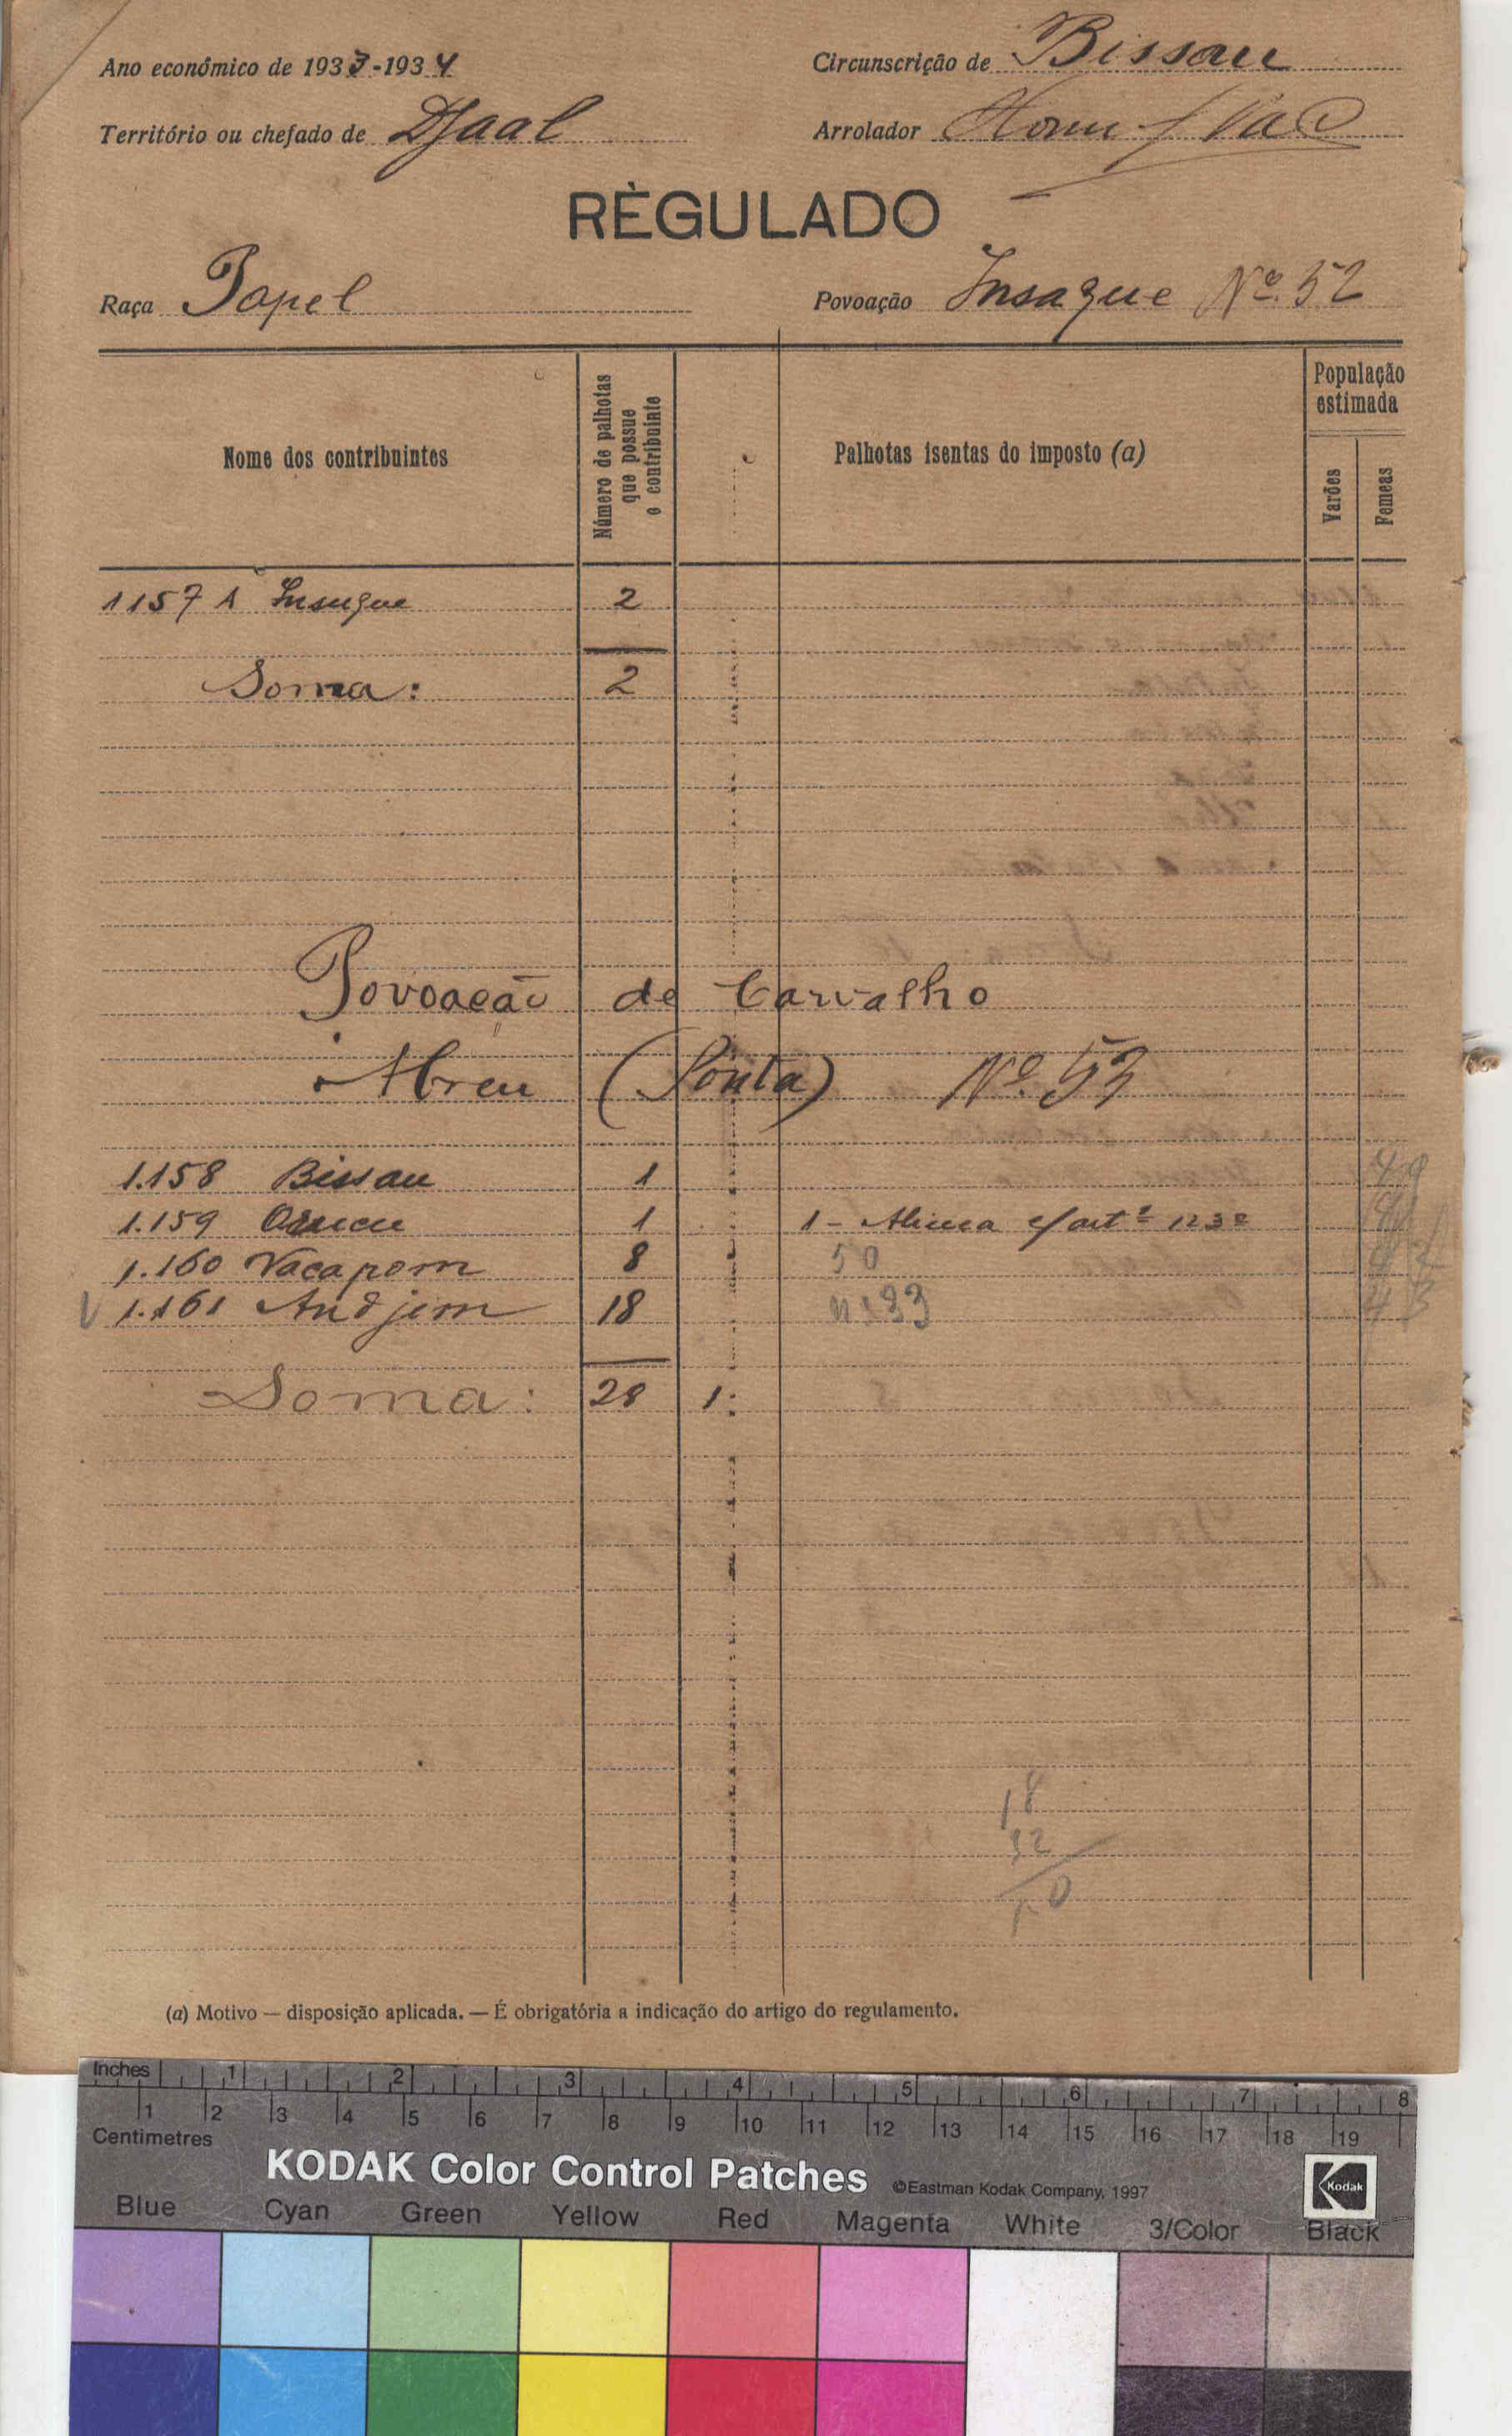 Ano económico de 1933-1934
Circunscrição de Bissau
Território ou chefado de Djaal
Arrolador
RÈGULADO
Raça Papel
Povoação Insaque Nº 52
Nome dos contribuintes
Número de palhotas que possue o contribuinte
Palhotas isentas do imposto (a)
População estimada
Varões
Femeas
1157 A Insugue 2
Soma: 2
Povoação de Carvalho
Abreu (Ponta) Nº 53
1.158 Bissau 1
1.159 1 1 - c/artº 123º
1.160 Vacapom 8 50
1.161 Andjim 18
Soma: 28 1
18
32
(a) Motivo — disposição aplicada. — É obrigatória a indicação do artigo do regulamento.
Inches 1 2 3 4 5 6 7 8
1 2 3 4 5 6 7 8 9 10 11 12 13 14 15 16 17 18 19
Centimetres
KODAK Color Control Patches ©Eastman Kodak Company, 1997
Kodak
Blue Cyan Green Yellow Red Magenta White 3/Color Black